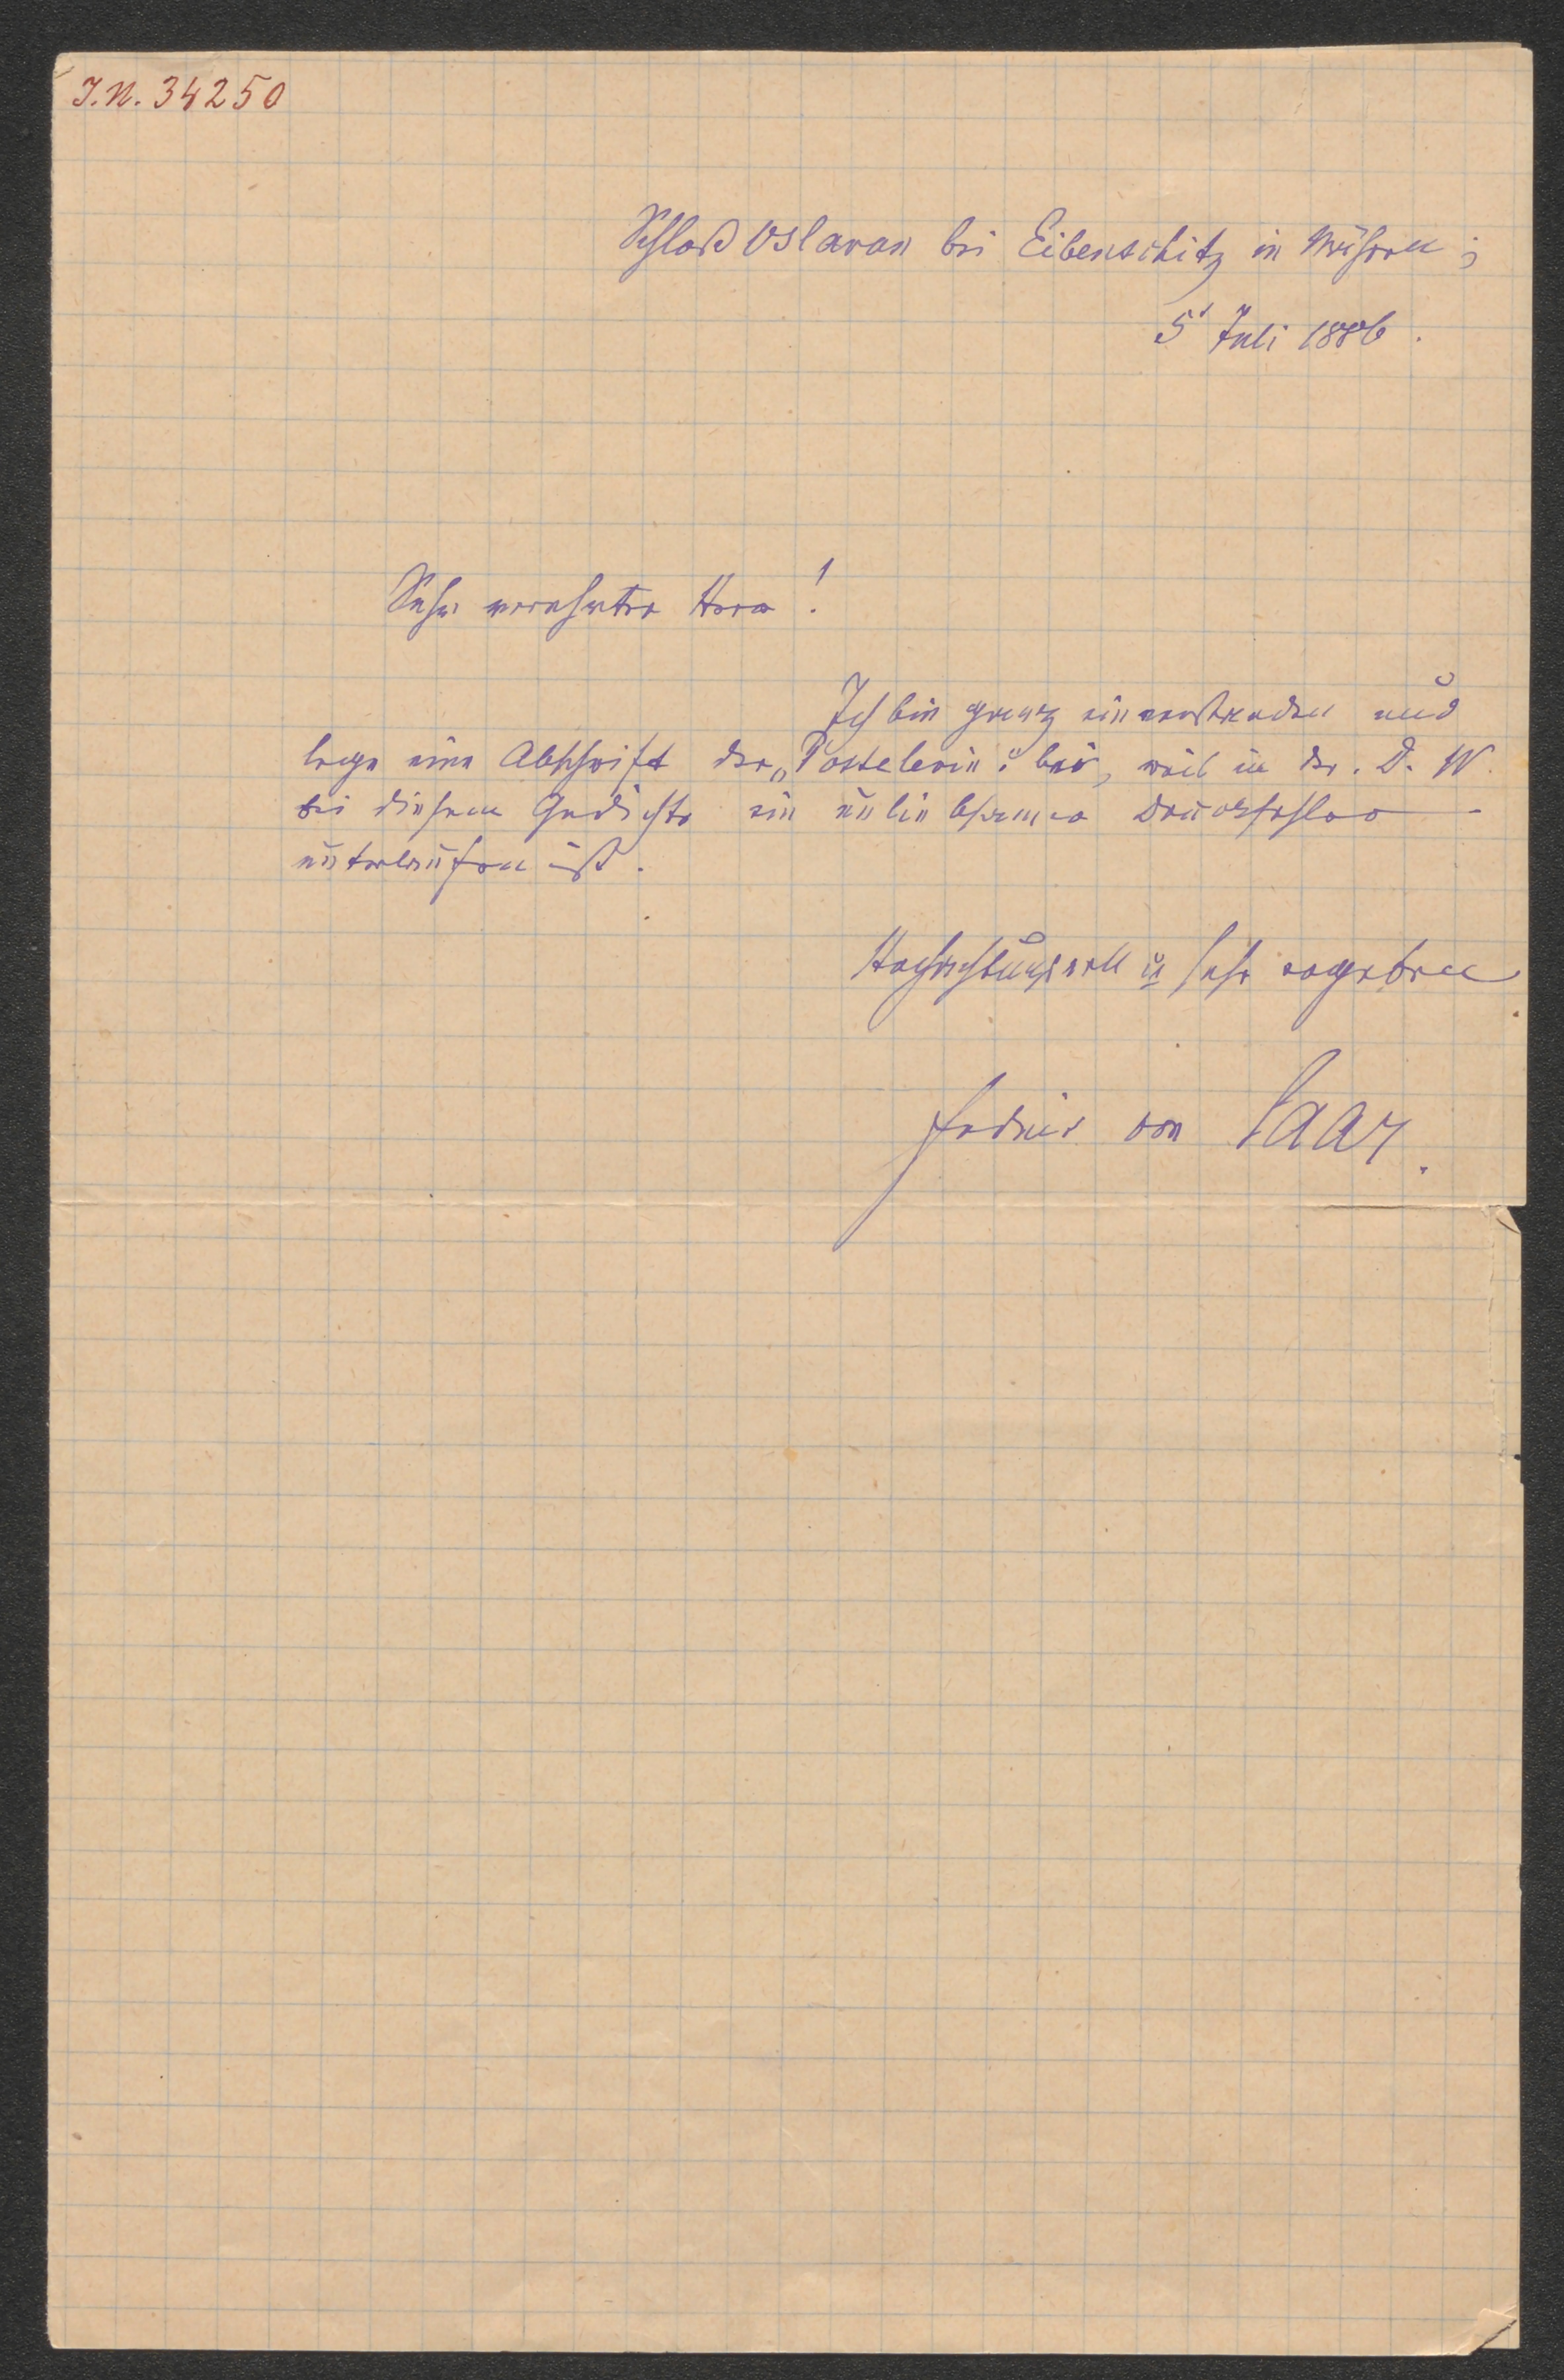 I.N. 34250
Schloß Oslavan bei Eibenschitz in Mähren;
5t Juli 1886.
Sehr verehrter Herr!
Ich bin ganz einverstanden und
lege eine Abschrift der „Post-Elevin" bei, weil in der D. W.
bei diesem Gedichte ein unliebsamer Druckfehler
unterlaufen ist.
Hochachtungsvoll u sehr ergeben
Ferdind von Saar.